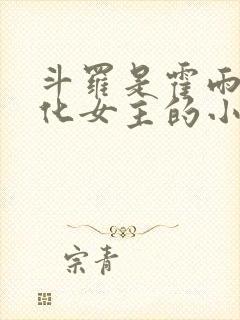 斗罗是霍雨
化女主的小
宗青